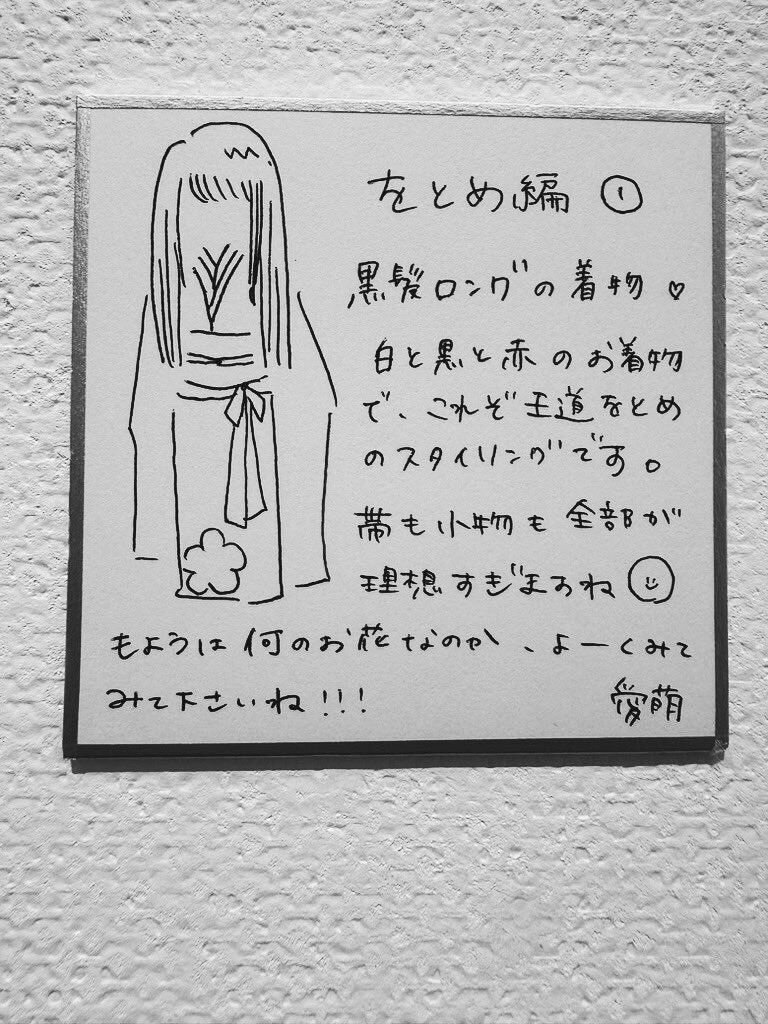 をとめ編 ①
黒髪ロングの着物♡
白と黒と赤のお着物
で、これぞ王道をとめ
のスタイリングです。
帯も小物も全部が
理想すぎますね
もようは何のお花なのか、よーくみて
みて下さいね!!!
愛萌